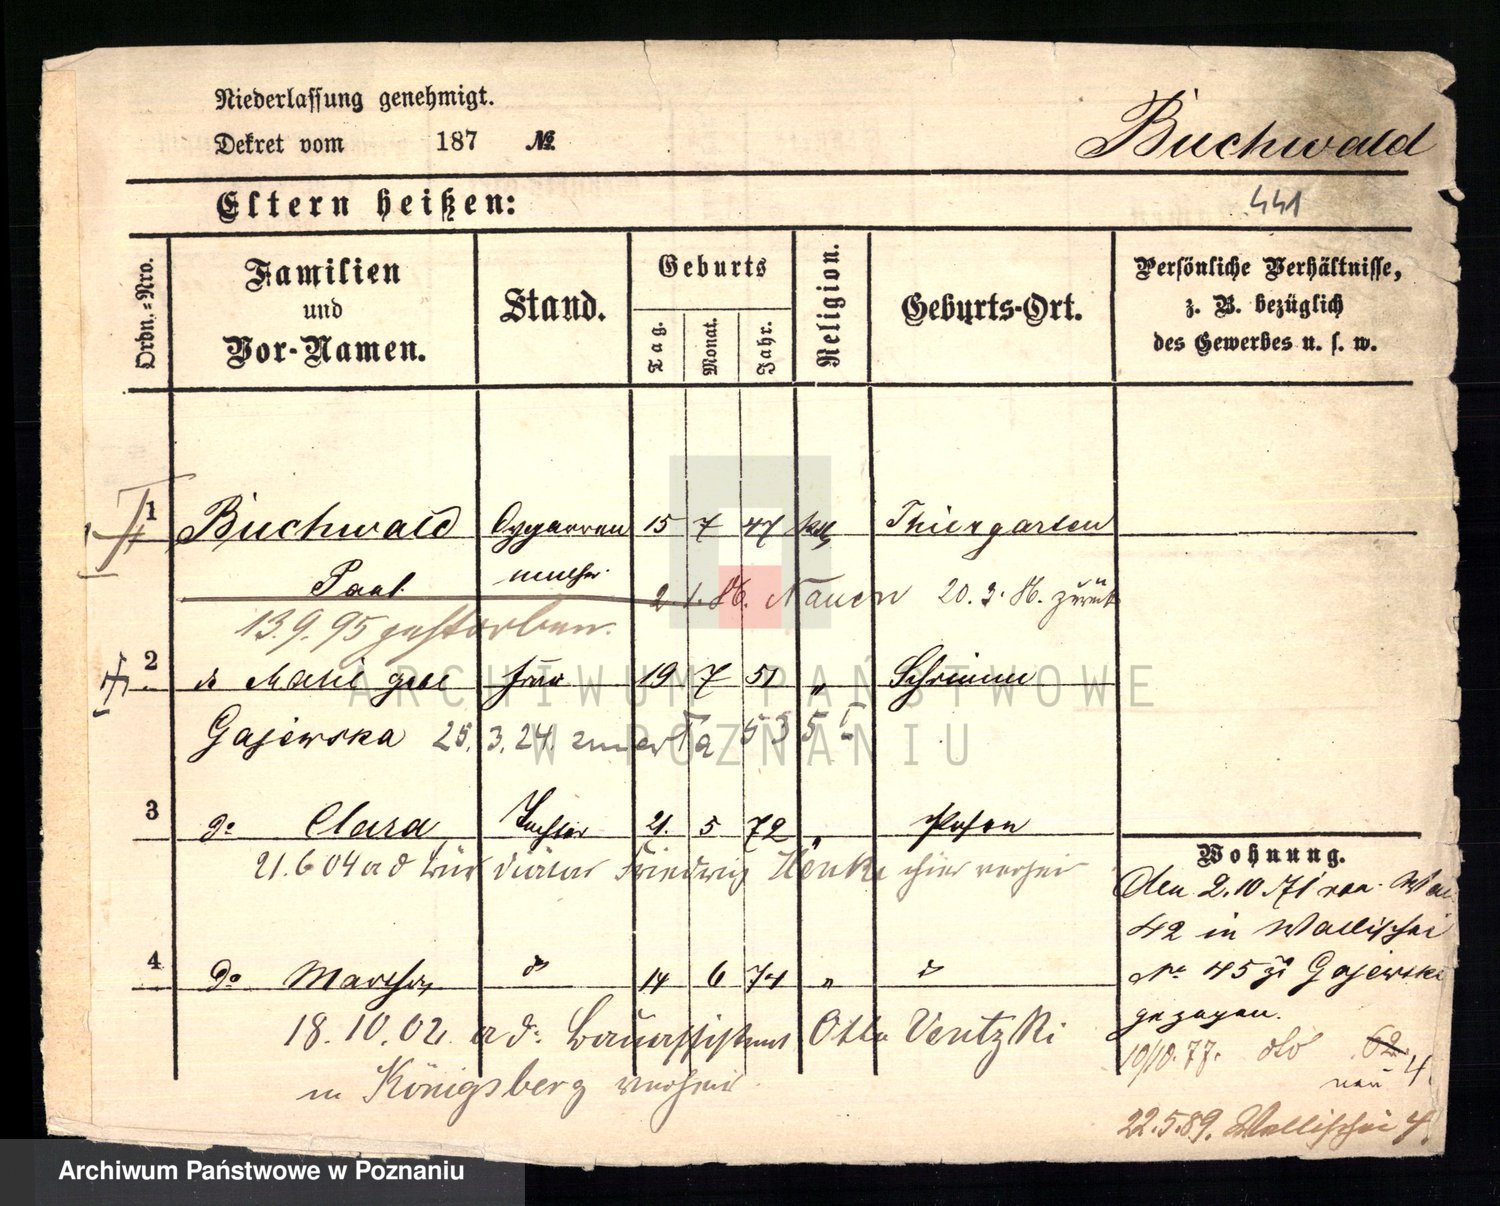 Niederlassung genehmigt.
Dekret vom 187 №
Buchwald
Eltern heißen:
441
Ordn.-Nro.
Familien und Vor-Namen.
Stand.
Geburts
Tag.
Monat.
Jahr.
Religion.
Geburts-Ort.
Persönliche Verhältnisse,
z. B. bezüglich
des Gewerbes u. s. w.
1 Buchwald 15 7 47 kath Thiergarten
Paul 2 1. 86. Nauen 20. 3. 86. zurück
13. 9. 95 gestorben.
2 Marie geb Frau 19 7 51 " Schrimm
Gajewska 25. 3. 24.
3 do Clara Tochter 21. 5 72 " Posen
21. 6 04 a d Friedrich hier verheir
4 do Martha do 14 6 74 " do
18. 10. 02. a d: Bauassistent Otto Ventzki
in Königsberg verheir
Wohnung.
Den 2. 10. 71 von
42 in Wallischei
No 45 zu Gajewski
gezogen.
10/10. 77. dto 62.
neu 4.
22. 5. 89. Wallischei 4.
ARCHIWUM PAŃSTWOWE
W POZNANIU
Archiwum Państwowe w Poznaniu